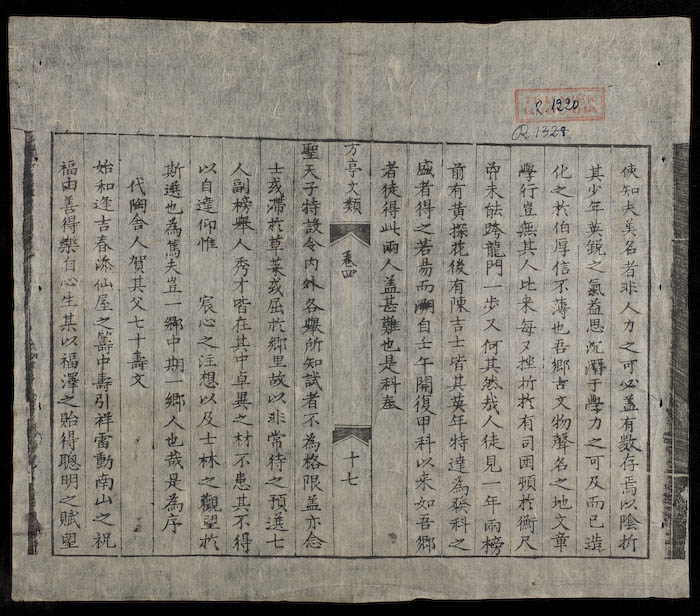 R.1220
R.1328
使知夫美名者非人力之可必盖有数存焉以陰折
其少年英鋭之氣益思沉潛于學力之可及而已造
化之於伯厚信不薄也吾郷古文物聲名之地文章
學行豈無其人比来每又挫折於有司困頓於衡尺
帝未能跨龍門一步又何其然哉人徒見一年兩榜
前有黄探花後有陳吉士皆其英年特達為發科之
盛者得之若易而溯自壬午開復甲科以来如吾郷
者徒得此兩人盖甚難也是科奉
方亭文類
卷四
十七
聖天子特設令内外各舉所知試者不為格限盖亦念
士或滞於草莱或屈於郷里故以非常待之預選七
人副榜舉人秀才皆在其中卓異之材不患其不得
以自達仰惟 宸心之注想以及士林之觀望於
斯選也為篤夫豈一郷中期一郷人也哉是為序
代陶舍人賀其父七十壽文
始和逢吉春添仙屋之籌中壽引祥雷動南山之祝
福由善得樂自心生其以福澤之貽得聰明之賦望